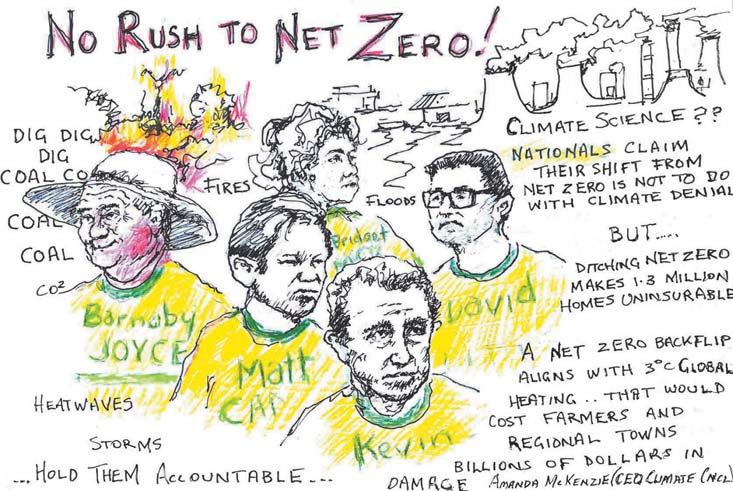 NO RUSH TO NET ZERO!
DIG DIG
DIG
COAL CO
COAL
COAL
CO²
FIRES
FLOODS
CLIMATE SCIENCE ??
NATIONALS CLAIM
THEIR SHIFT FROM
NET ZERO IS NOT TO DO
WITH CLIMATE DENIAL
BUT.....
DITCHING NET ZERO
MAKES 1.3 MILLION
HOMES UNINSURABLE
A NET ZERO BACKFLIP
ALIGNS WITH 3°C GLOBAL
HEATING .. THAT WOULD
COST FARMERS AND
REGIONAL TOWNS
BILLIONS OF DOLLARS IN
DAMAGE AMANDA MCKENZIE (CEO CLIMATE CNCL)
Bridget
David
Barnaby
JOYCE
Matt
CA
Kevin
HEATWAVES
STORMS
...HOLD THEM ACCOUNTABLE...